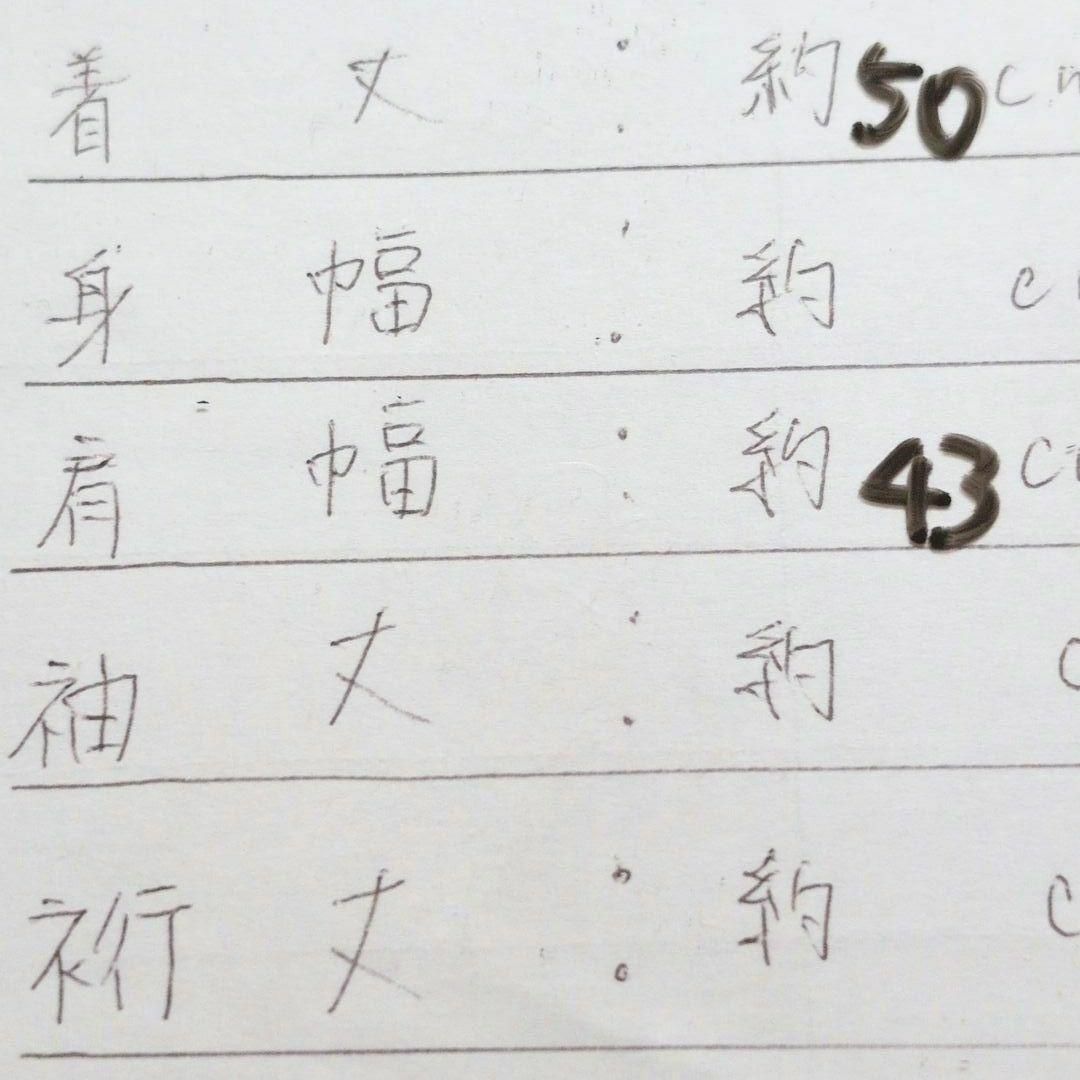 着丈：約50cm
身幅：約 c
肩幅：約43c
袖丈：約 c
裄丈：約 c